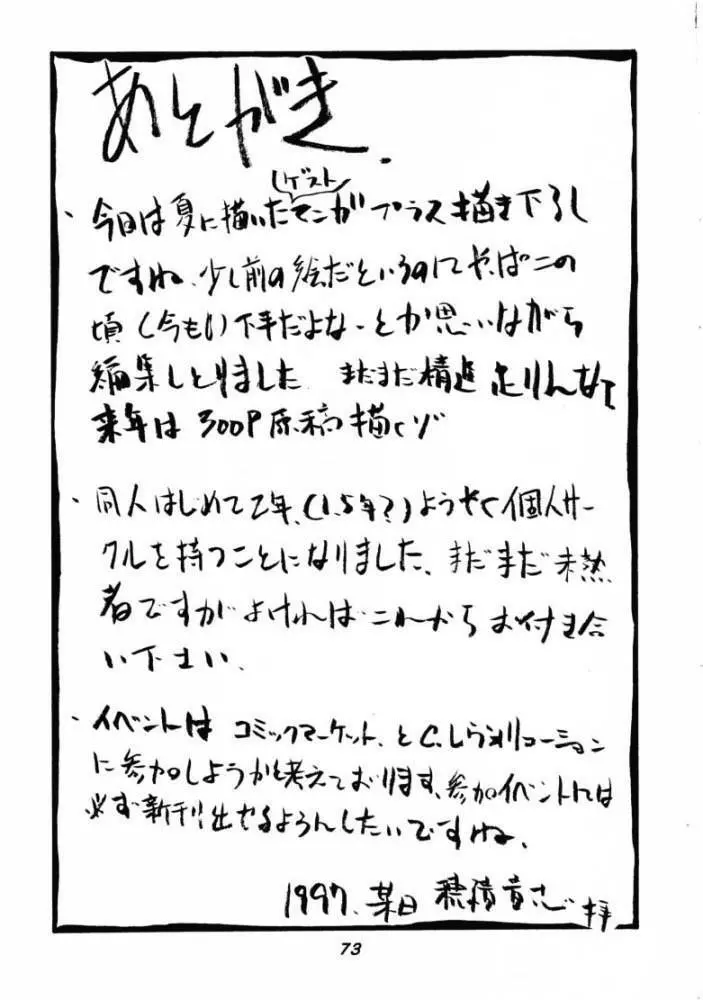 あとがき.
ゲスト
・今回は夏に描いたマンガプラス描き下ろし
ですね、少し前の絵だというのにやっぱこの
頃(今も!)下手だよなーとか思いながら
編集しとりました まだまだ精進足りんなって
来年は300P原稿描くゾ
・同人はじめて2年、(1.5年?)ようやく個人サー
クルを持つことになりました、まだまだ未熟
者ですがよければこれからお付き合
い下さい、
・イベントは コミックマーケット、とC.レヴォリューション
に参加しようかと考えております、参加イベントには
必ず新刊出せるようんしたいですね、
1997、某日 穂積貴志 拝
73